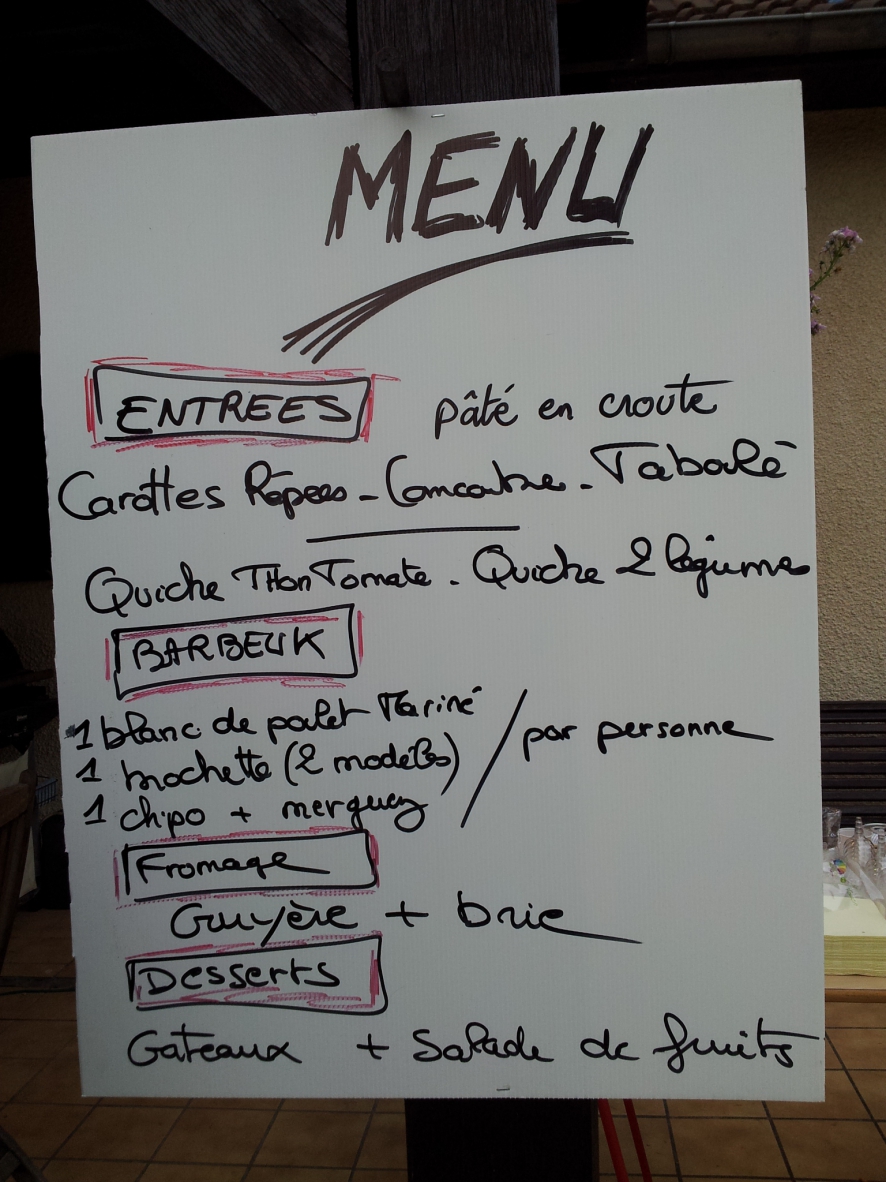 MENU
ENTREES pâté en croute
Carottes Râpees - Concombre - Taboulé
Quiche THon Tomate - Quiche 2 légumes
BARBEUK
1 blanc de poulet Mariné
1 brochette (2 modèles) / par personne
1 chipo + merguez
Fromage
Gruyère + brie
Desserts
Gateaux + Salade de fruits